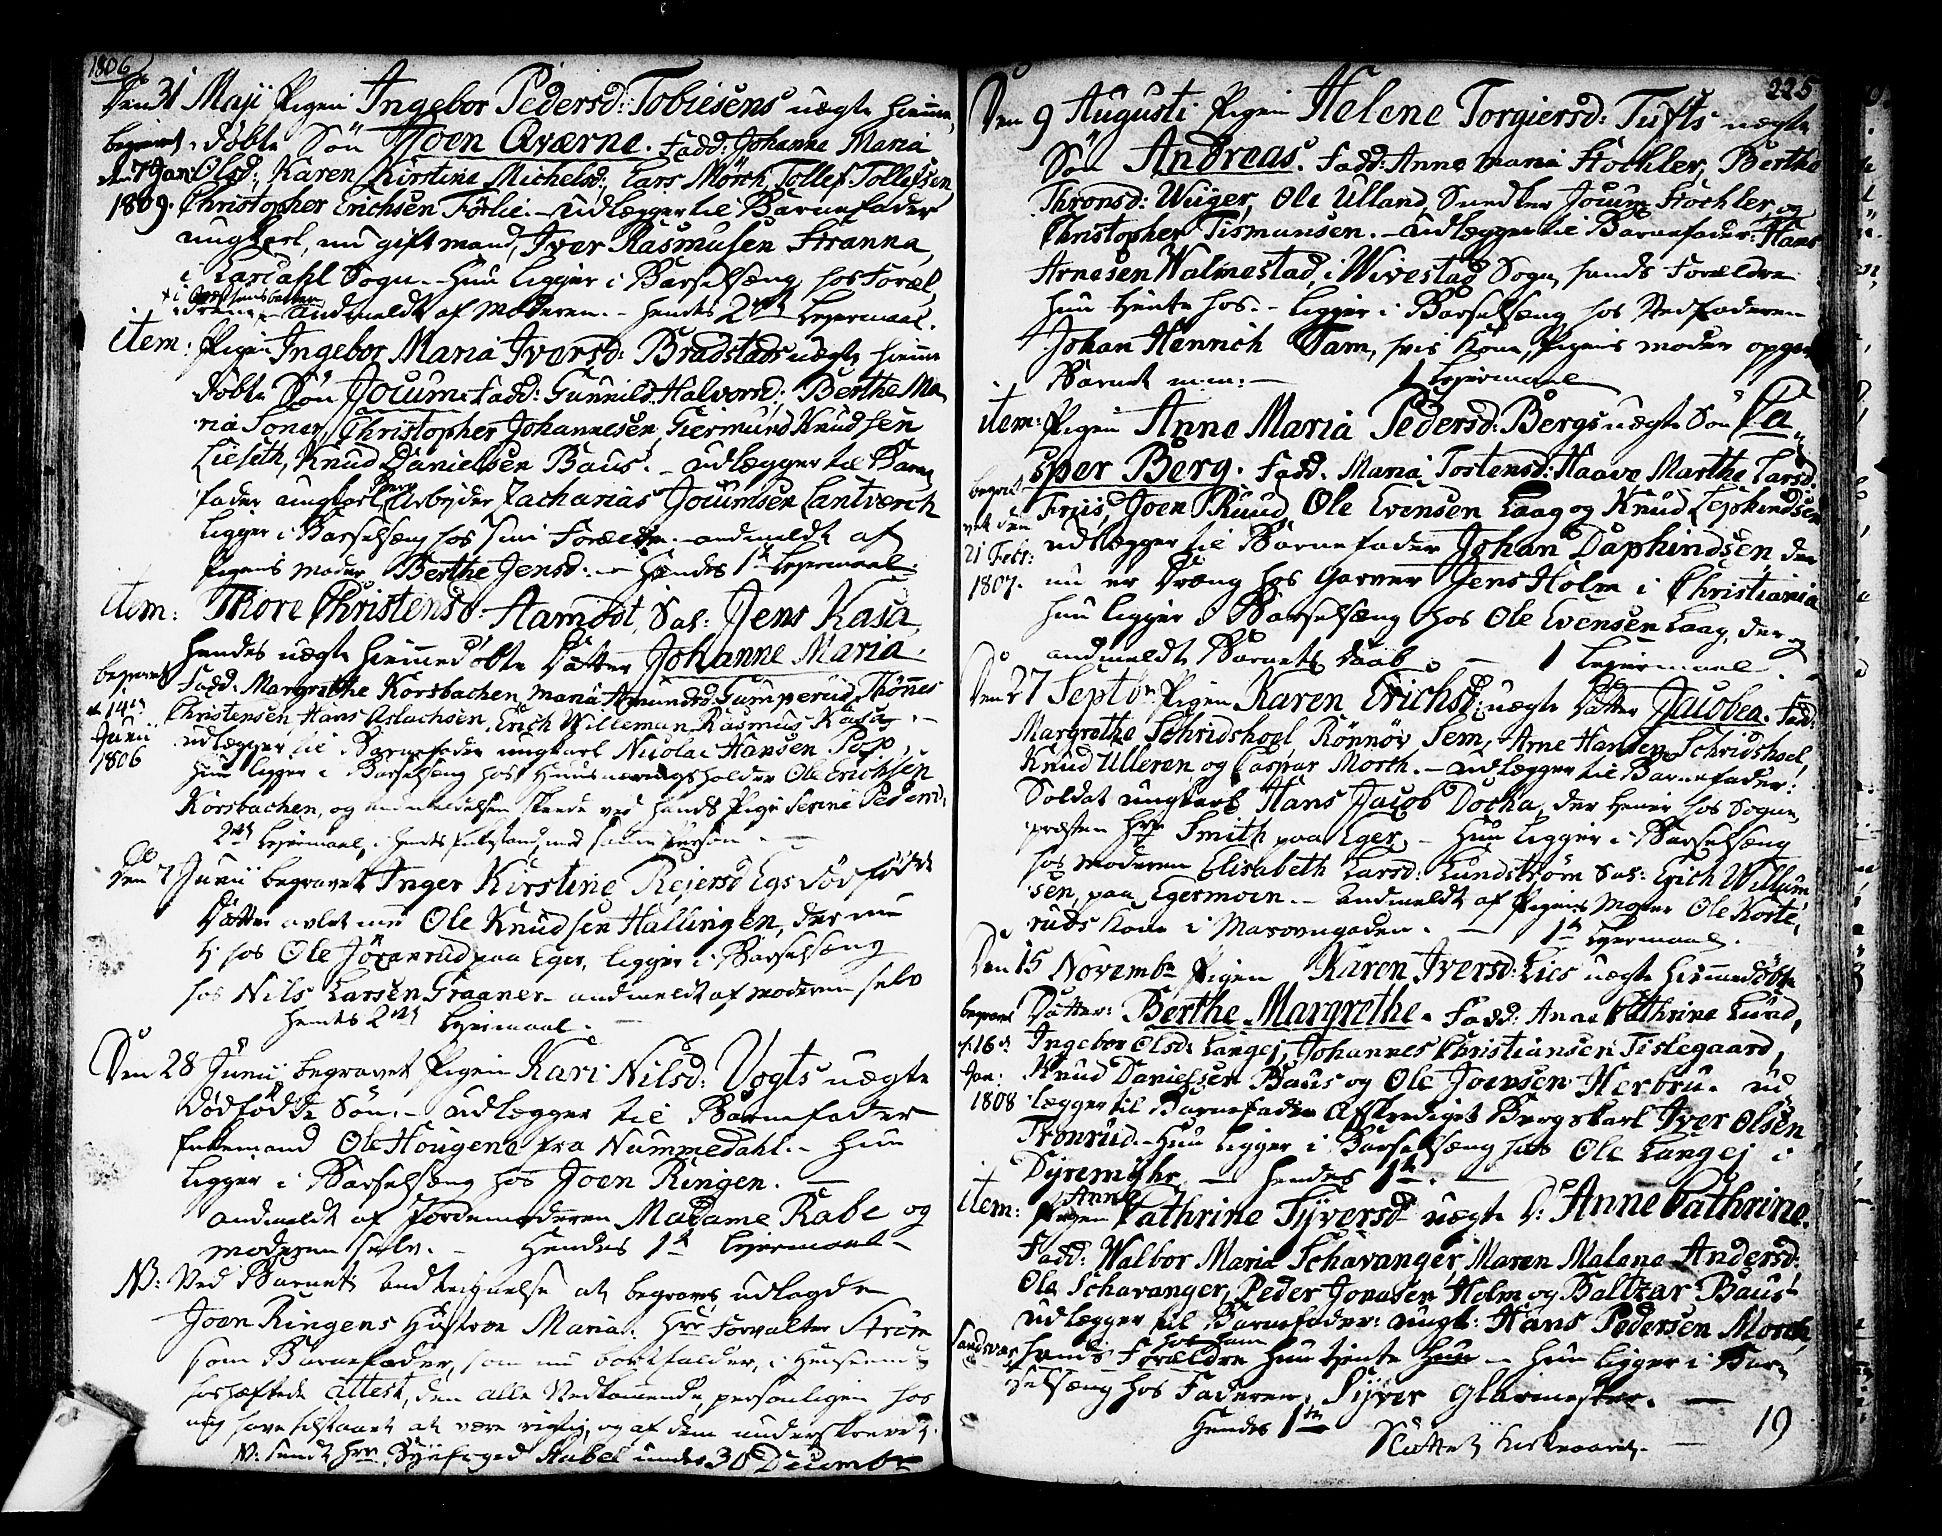 1806
Den 31 Maji Pigen Ingebor Pedersd: Tobiesens uægte hieme
døbte Søn Joen Qværne. Fadd: Johanna Maria
begravet den 7 Jan: 1809.
Olsd:, Karen Kirstina Michelsd:, Lars Mörch, Tollef Tollefsen
Christopher Erichsen Förlie. - Udlægger til Barnefader
ungkarl, nu gift mand, Iver Rasmusen Stranna,
i Lardahl Sogn. - Hun ligger i Barselsæng hos Foræl,
drene - Andmeldt af Moderen. - Hendes 2det Lejermaal.
item: Pigen Ingebor Maria Iversd: Bradstads uægte hieme
døbte Søn Jocum. Fadd: Gunnild Halvorsd:, Berthe Ma,
ria Toner, Christopher Johannesen, Giermund Knudsen
Lieseth, Knud Danielsen Baus. - Udlægger til Barne
fader ungkarl Arbejder Zacharias Jocumsen Lantverch
ligger i Barselsæng hos sine Forældre. - andmeldt af
Pigens moder Berthe Jensd: - Hendes 1te Lejermaal.
item: Thore Christensd: Aambot, Sal: Jens Kasa,
hendes uægte hiemedøbte Datter Johanne Maria.
begravet d 14de Junii 1806
Fadd: Margrethe Korsbachen, Maria Amundsd: Gumperud, Thönnes
Christensen, Hans Aslachsen, Erich Willeman, Rasmus Kasa. -
udlægger til Barnefader ungkarl Nicolai Hansen Pop,
Hun ligger i Barselsæng hos Huusnæringsholder Ole Erichsen
Korsbachen, og andmeldelsen skeede ved hands Pige Serine Pedersd:
2det Lejermaal, i hendes Enkestand, med samme Person. -
Den 7 Junii begravet Inger Kirstine Rejersd Egs dødfødte
Datter avlet med Ole Knudsen Hallingen, der nu
er hos Ole Jöranrud paa Eger, ligger i Barselsæng
hos Nils Larsen Graaner - andmeldt af moderen selv
Hendes 2det Lejermaal. -
Den 28 Junii begravet Pigen Kari Nilsd: Vogts uægte
dødfødte Søn. - Udlægger til Barnefader
Enkemand Ole Hougene fra Nummedahl. - Hun
ligger i Barselsæng hos Joen Ringen. -
Andmeldt af Jordemoderen Madame Rabe og
moderen selv. - Hendes 1te Lejermaal -
NB: Ved Barnets begraves udlagde
Joen Ringens Hustroe Maria. Hrr Forvalter Ström
som Barnefader, som nu bortfalder, i
hoshæftede Attest, den alle Vedkommende personligen hos
mig have tilstaaet at være rigtig, og af dem underskrevet.
NB: sendt Hrr Byefoged Stabel under 30 Decembr
225
Den 9 Augusti Pigen Helene Torgiersd: Tufts uægte
Søn Andreas. Fadd: Anne Maria Stochler, Berthe
Thronsd: Wuger, Ole Ulland, Snedker Jocum Stochler, og
Christopher Tismansen. - Udlægger til Barnefader: Hans
Arnesen Walmestad, i Wivestad Sogn, hands Forældre
hun tjente hos. - Ligger i Barselsæng hos Stedfaderen
Johan Henrich Tam, hvis Kone, Pigens moder opgav
Barnet - 1 Lejermaal
item: Pigen Anne Maria Pedersd: Bergs uægte Søn Ca,
sper Berg. Fadd: Maria Tostensd: Haave, Marthe Larsd:
begravet den 21 Febr: 1807.
Friis, Joen Ruud, Ole Evensen Laag og Knud Lephindsen
udlægger til Barnefader Johan Daphindsen, der
nu er Dreng hos Garver Jens Holm i Christiania
hun ligger i Barselsæng hos Ole Evensen Laag, der og
andmeldte Barnets Daab. - 1 Lejermaal
Den 27 Septbr Pigen Karen Erichsd: uægte Datter Jacobea. Fadd:
Margrethe Schridshoel, Rönnöv Sem, Arne Hansen Schridshoel,
Knud Ulleren og Caspar Morch. - Udlægger til Barnefader:
Soldat ungkarl Hans Jacob Docka, der tiener hos Sogne,
præsten Hrr Smith paa Eger. - Hun ligger i Barselsæng
hos moderen Elisabeth Larsd: Lundström Sal: Erich Willum
sen, paa Egermoen. - Andmeldt af Pigens Moder Ole Korte,
ruds Kone i - 1te Lejermaal.
Den 15 Novembr Pigen Karen Iversd: Lies uægte hiemedøbte
Datter: Berthe Margrethe. Fadd: Anne Cathrine Lund,
begravet d 16de Jan: 1808
Ingebor Olsd: Langej, Johannes Christiansen Tislegaard,
Knud Danielsen Baus og Ole Joensen Herbru. ud,
lægger til Barnefader Afskediget Bergskarl Iver Olsen
Tronrud - Hun ligger i Barselsæng hos Ole Langej i
Dyremyhr - Hendes 1te. -
item: Pigen Anne Cathrine Syversd uægte D: Anne Cathrine.
Fadd: Walbor Maria Schavanger, Maren Malene Andersd:
Ole Schavanger, Peder Jonasen Holm og Baltzar Baus
udlægger til Barnefader: ungk: Hans Pedersen Morch,
Sandsvær
hands Forældre hos ham hun tjente - hun ligger i Bar,
selsæng hos Faderen, Syver Glarmester. -
Hendes 1te
Sluttet Kirkeaaret. - 19